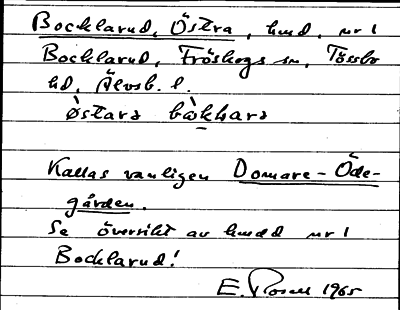 Bocklarud, Östra, hmd, nr 1
Bocklarud, Fröskogs sn, Tössbo
hd, Älvsb. l.
òstara bàkhara
Kallas vanligen Domare-Öde-
gården.
Se översikt av hmdd nr 1
Bocklarud!
E. Rosell 1965